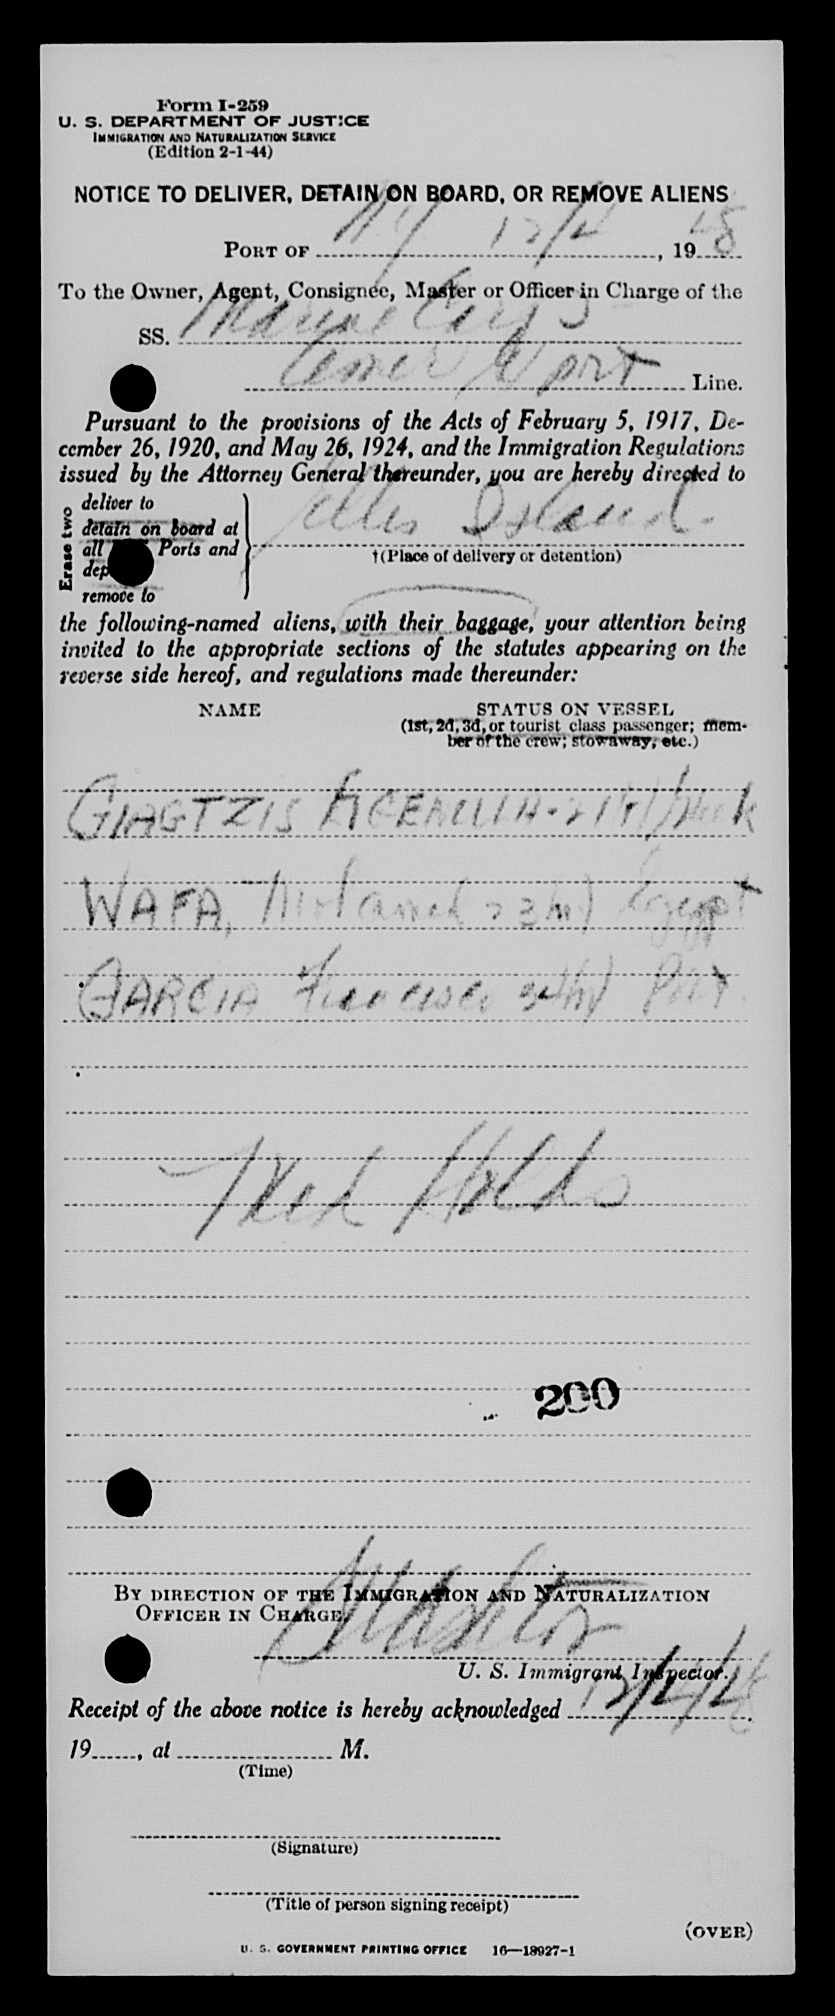 Form I-259
U. S. DEPARTMENT OF JUSTICE
IMMIGRATION AND NATURALIZATION SERVICE
(Edition 2-1-44)
NOTICE TO DELIVER, DETAIN ON BOARD, OR REMOVE ALIENS
PORT OF NY 12/4, 1948
To the Owner, Agent, Consignee, Master or Officer in Charge of the
SS. Marine Carp
Amer Export Line.
Pursuant to the provisions of the Acts of February 5, 1917, De-
cember 26, 1920, and May 26, 1924, and the Immigration Regulations
issued by the Attorney General thereunder, you are hereby directed to
Erase two
deliver to
detain on board at
all Ports and
dep
remove to
Ellis Island
†(Place of delivery or detention)
the following-named aliens, with their baggage, your attention being
invited to the appropriate sections of the statutes appearing on the
reverse side hereof, and regulations made thereunder:
NAME STATUS ON VESSEL
(1st, 2d, 3d, or tourist class passenger; mem-
ber of the crew; stowaway, etc.)
GIAGTZIS
WAFA, Mohamed 23 m Egypt
GARCIA Francisco 34 m Port.
Med Holds
200
BY DIRECTION OF THE IMMIGRATION AND NATURALIZATION
OFFICER IN CHARGE.
U. S. Immigrant Inspector.
Receipt of the above notice is hereby acknowledged 12/4/48
19......, at .................... M.
(Time)
(Signature)
(Title of person signing receipt)
(OVER)
U. S. GOVERNMENT PRINTING OFFICE 16—18927-1